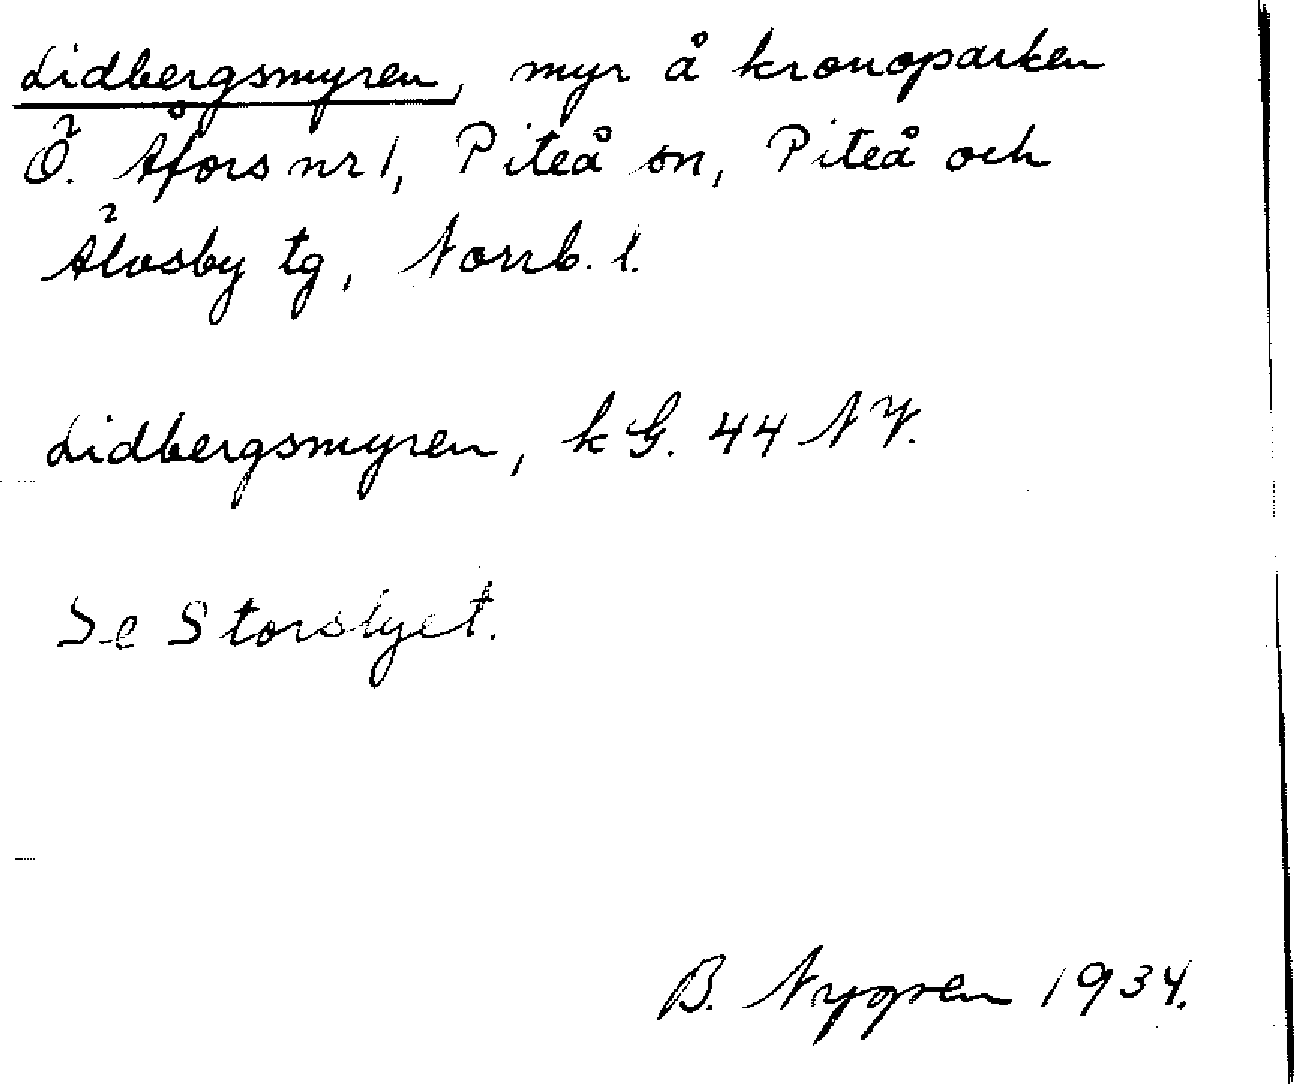 Lidbergsmyren, myr å kronoparken
Ö. Åfors nr 1, Piteå sn, Piteå och
Älvsby tg, Norrb. l.
Lidbergsmyren, kG. 44 NV.
Se Storslyet.
B. Nygren 1934.